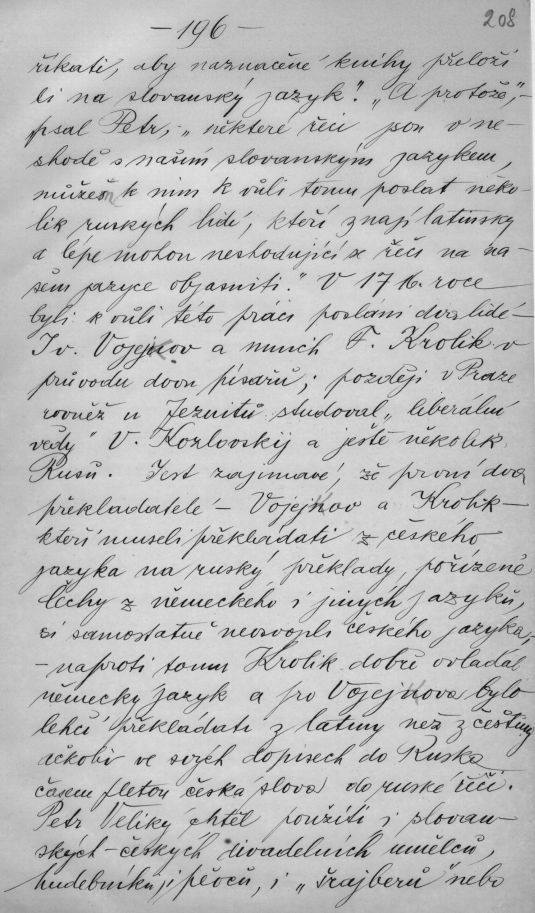 208
— 196 —
říkati, aby naznačené knihy přeloži
li na slovanský jazyk". "A protože",-
psal Petr, - "některé řeči jsou v ne-
shodě s naším slovanským jazykem,
můžem k nim k vůli tomu poslat něko-
lik ruských lidí, kteří znají latinsky
a lépe mohou neshodující se řeči na na-
šem jazyce objasniti." V 1716. roce
byli k vůli této práci posláni dva lidé-
Iv. Vojejkov a mnich F. Krolik v
průvodu dvou písařů; později v Praze
rovněž u Jezuitů studoval "liberální
vědy" V. Kozlovskij a ještě několik
Rusů. Jest zajímavé, že první dva
překladatelé - Vojejkov a Krolik -
kteří museli překládati z českého
jazyka na ruský překlady, pořízené
Čechy z německého i jiných jazyků,
si samostatně neosvojili českého jazyka,-
- naproti tomu Krolik dobře ovládal
německý jazyk a pro Vojejkova bylo
lehčí překládati z latiny než z češtiny
ačkoli ve svých dopisech do Ruska
časem pletou česká slova do ruské řeči.
Petr Veliký chtěl použíti i slovan-
ských - českých divadelních umělců,
hudebníků, i pěvců, i "šrajberů" nebo